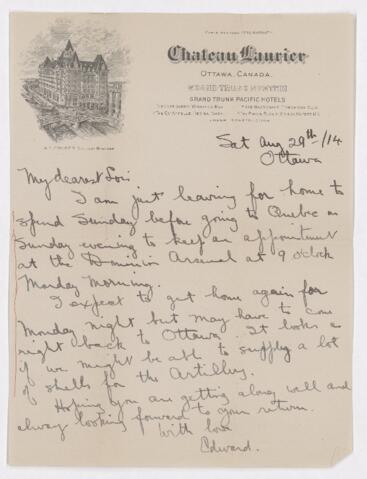 Chateau Laurier
OTTAWA, CANADA.
GRAND TRUNK PACIFIC HOTELS
Sat Aug 29th/14
Ottawa
My dearest
I am just leaving for home to
spend Sunday before going to Quebec on
Sunday evening to keep an appointment
at the Dominion Arsenal at 9 o'clock
Monday Morning.
I expect to get home again for
Monday night but may have to come
right back to Ottawa. It looks as
if we might be able to supply a lot
of shells for the Artillery.
Hoping you are getting along well and
always looking forward to your return.
With love
Edward.